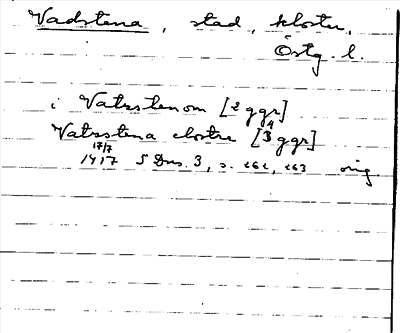 Vadstena, stad, kloster,
Östg. l.
i Vatzstenom [2 ggr]
4
Vatzstena clostre [3 ggr]
17/7
1417 S Dns. 3, s. 262, 263 orig.